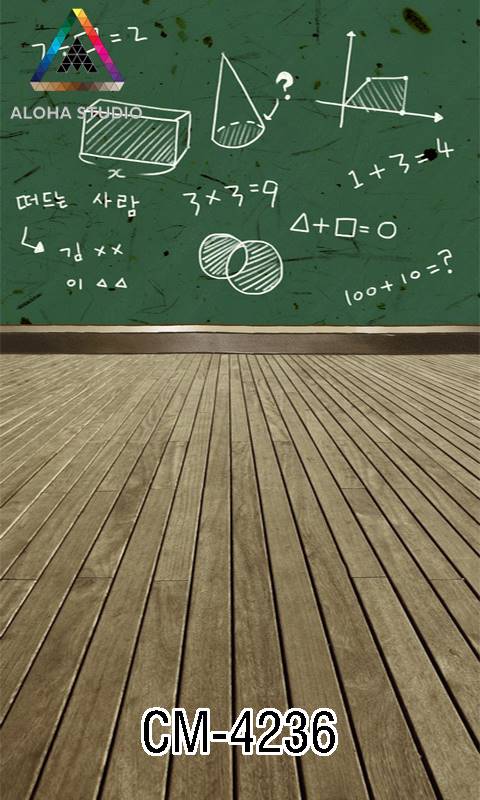 = 2
ALOHA STUDIO
?
x
1 + 3 = 4
떠드는 사람
3 × 3 = 9
△ + □ = ○
김 ××
이 △△
100 + 10 = ?
CM-4236